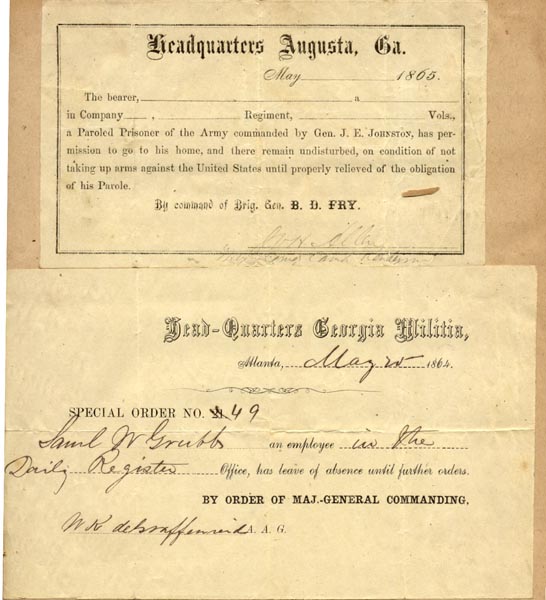 Headquarters Augusta, Ga.
May 1865.
The bearer, a
in Company , Regiment, Vols.,
a Paroled Prisoner of the Army commanded by Gen. J. E. Johnston, has per-
mission to go to his home, and there remain undisturbed, on condition of not
taking up arms against the United States until properly relieved of the obligation
of his Parole.
By command of Brig. Gen. B. D. FRY.
Head-Quarters Georgia Militia,
Atlanta, May 25 1864.
SPECIAL ORDER NO. 21. 49
Saml W Grubb an employee in the
Daily Register Office, has leave of absence until further orders.
BY ORDER OF MAJ.-GENERAL COMMANDING,
W K deGraffenreid A. A. G.